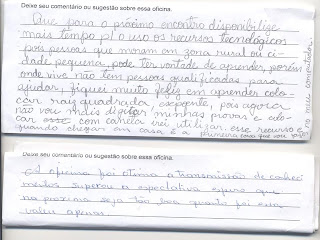 Deixe seu comentário ou sugestão sobre essa oficina.
Que para o próximo encontro disponibilize
mais tempo p/ o uso os recursos tecnológicos
pois pessoas que moram em zona rural ou ci-
dade pequena, pode ter vontade de aprender, porém
onde vive não tem pessoas qualificadas para
ajudar, fiquei muito feliz em aprender colo-
car raiz quadrada, expoente, pois agora
não vou mais digitar minhas provas e colo-
car esse com caneta irei utilizar esse recurso e
quando chegar em casa é a primeira coisa que vou
meu computador.
Deixe seu comentário ou sugestão sobre essa oficina.
A oficina foi otima a transmissão de conheci
mentos superou a expectativa espero que
na proxima seja tão boa quanto foi essa
valeu apena.